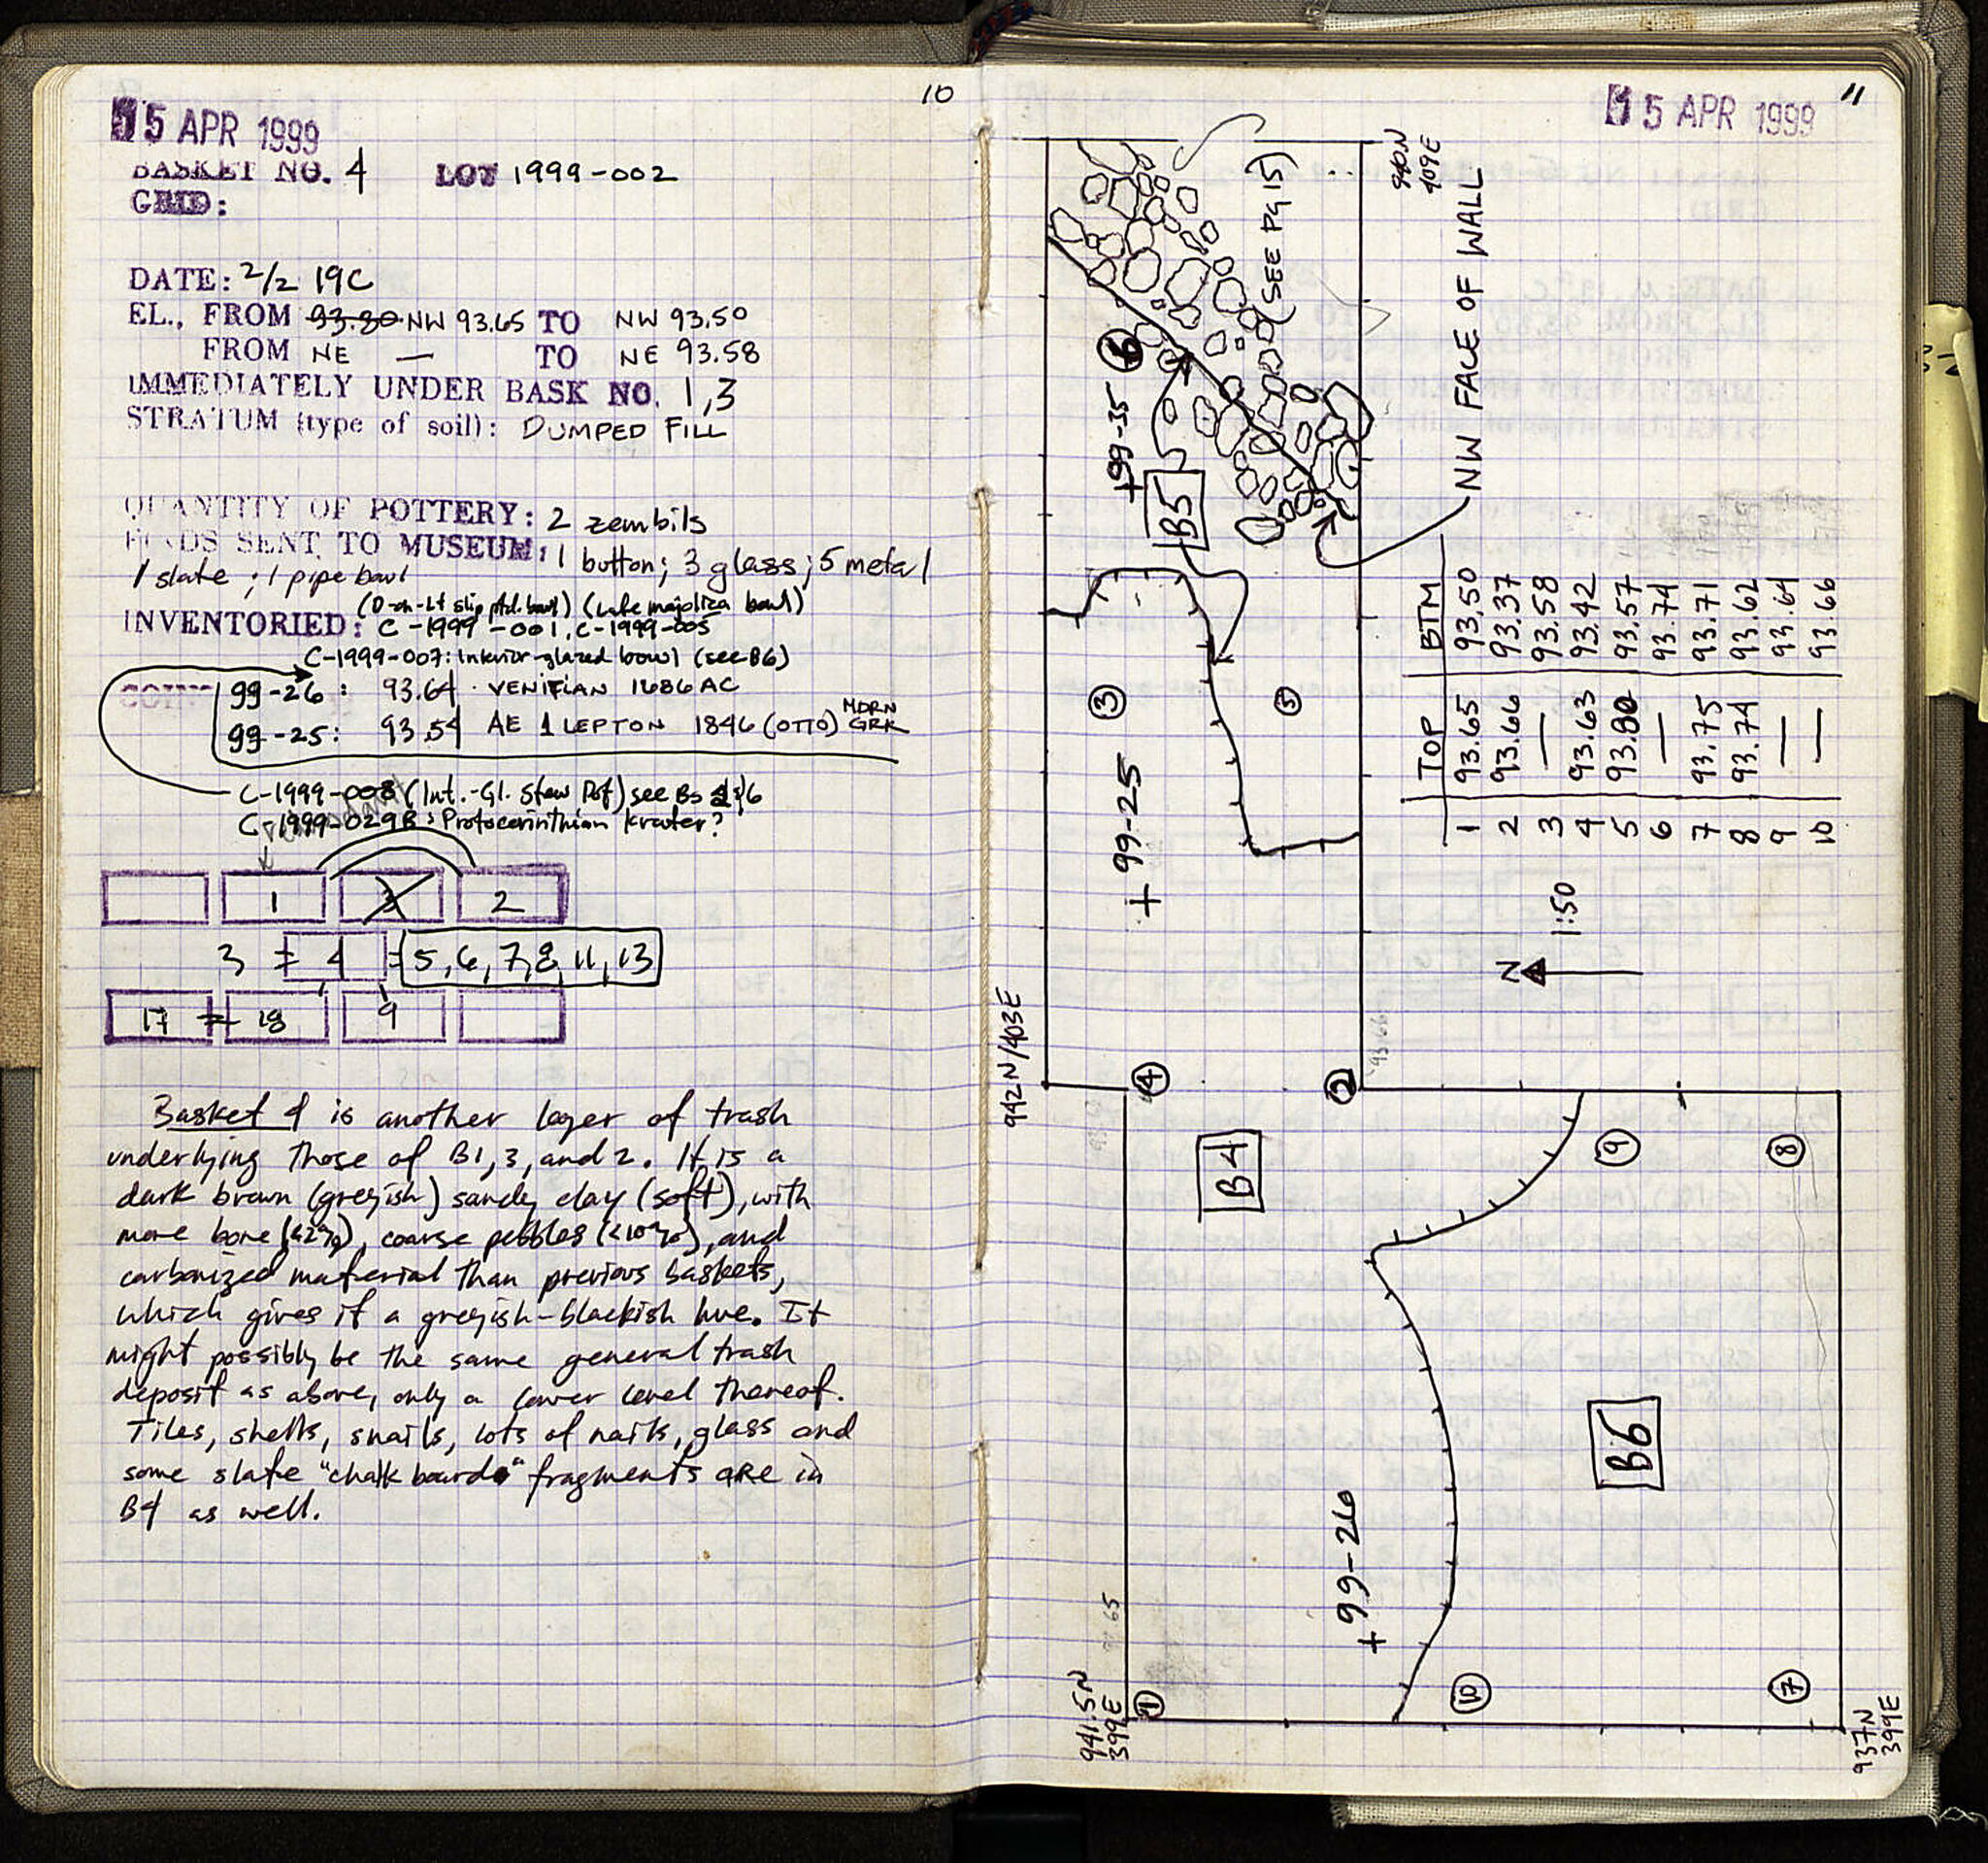 10
15 APR 1999
BASKET NO. 4 LOT 1999-002
GRID:
DATE: 2/2 19C
EL., FROM 93.80 NW 93.65 TO NW 93.50
FROM NE — TO NE 93.58
IMMEDIATELY UNDER BASK NO. 1,3
STRATUM (type of soil): DUMPED FILL
QUANTITY OF POTTERY: 2 zembils
FINDS SENT TO MUSEUM: 1 button; 3 glass; 5 metal
1 slate ; 1 pipe bowl
(D-on-Lt slip ptd. bowl) (Late majolica bowl)
INVENTORIED: C-1999-001, C-1999-005
C-1999-007: Interior-glazed bowl (see B6)
COINS 99-26: 93.64 · VENITIAN 1686 AC
99-25: 93.54 AE 1 LEPTON 1846 (OTTO) MDRN GRK
C-1999-008 (Int.-Gl. Stew Pot) see Bs 6
C-1999-029B: Protocorinthian krater?
1 3 2
3 = 4 = 5, 6, 7, 8, 11, 13
17 = 18 9
Basket 4 is another layer of trash
underlying those of B1, 3, and 2. It is a
dark brown (greyish) sandy clay (soft), with
more bone (<2%), coarse pebbles (<10%), and
carbonized material than previous baskets,
which gives it a greyish-blackish hue. It
might possibly be the same general trash
deposit as above, only a lower level thereof.
Tiles, shells, snails, lots of nails, glass and
some slate "chalk board" fragments are in
B4 as well.
11
15 APR 1999
940N
409E
(SEE PG 15)
NW FACE OF WALL
6
+99-35
B5
3
5
+99-25
TOP BTM
1 93.65 93.50
2 93.66 93.37
3 — 93.58
4 93.63 93.42
5 93.80 93.57
6 — 93.74
7 93.75 93.71
8 93.74 93.62
9 — 93.64
10 — 93.66
1:50
N
942N/403E
93.66
4
2
B4
9
8
B6
+99-26
93.65
1
10
7
941.5N
399E
937N
399E